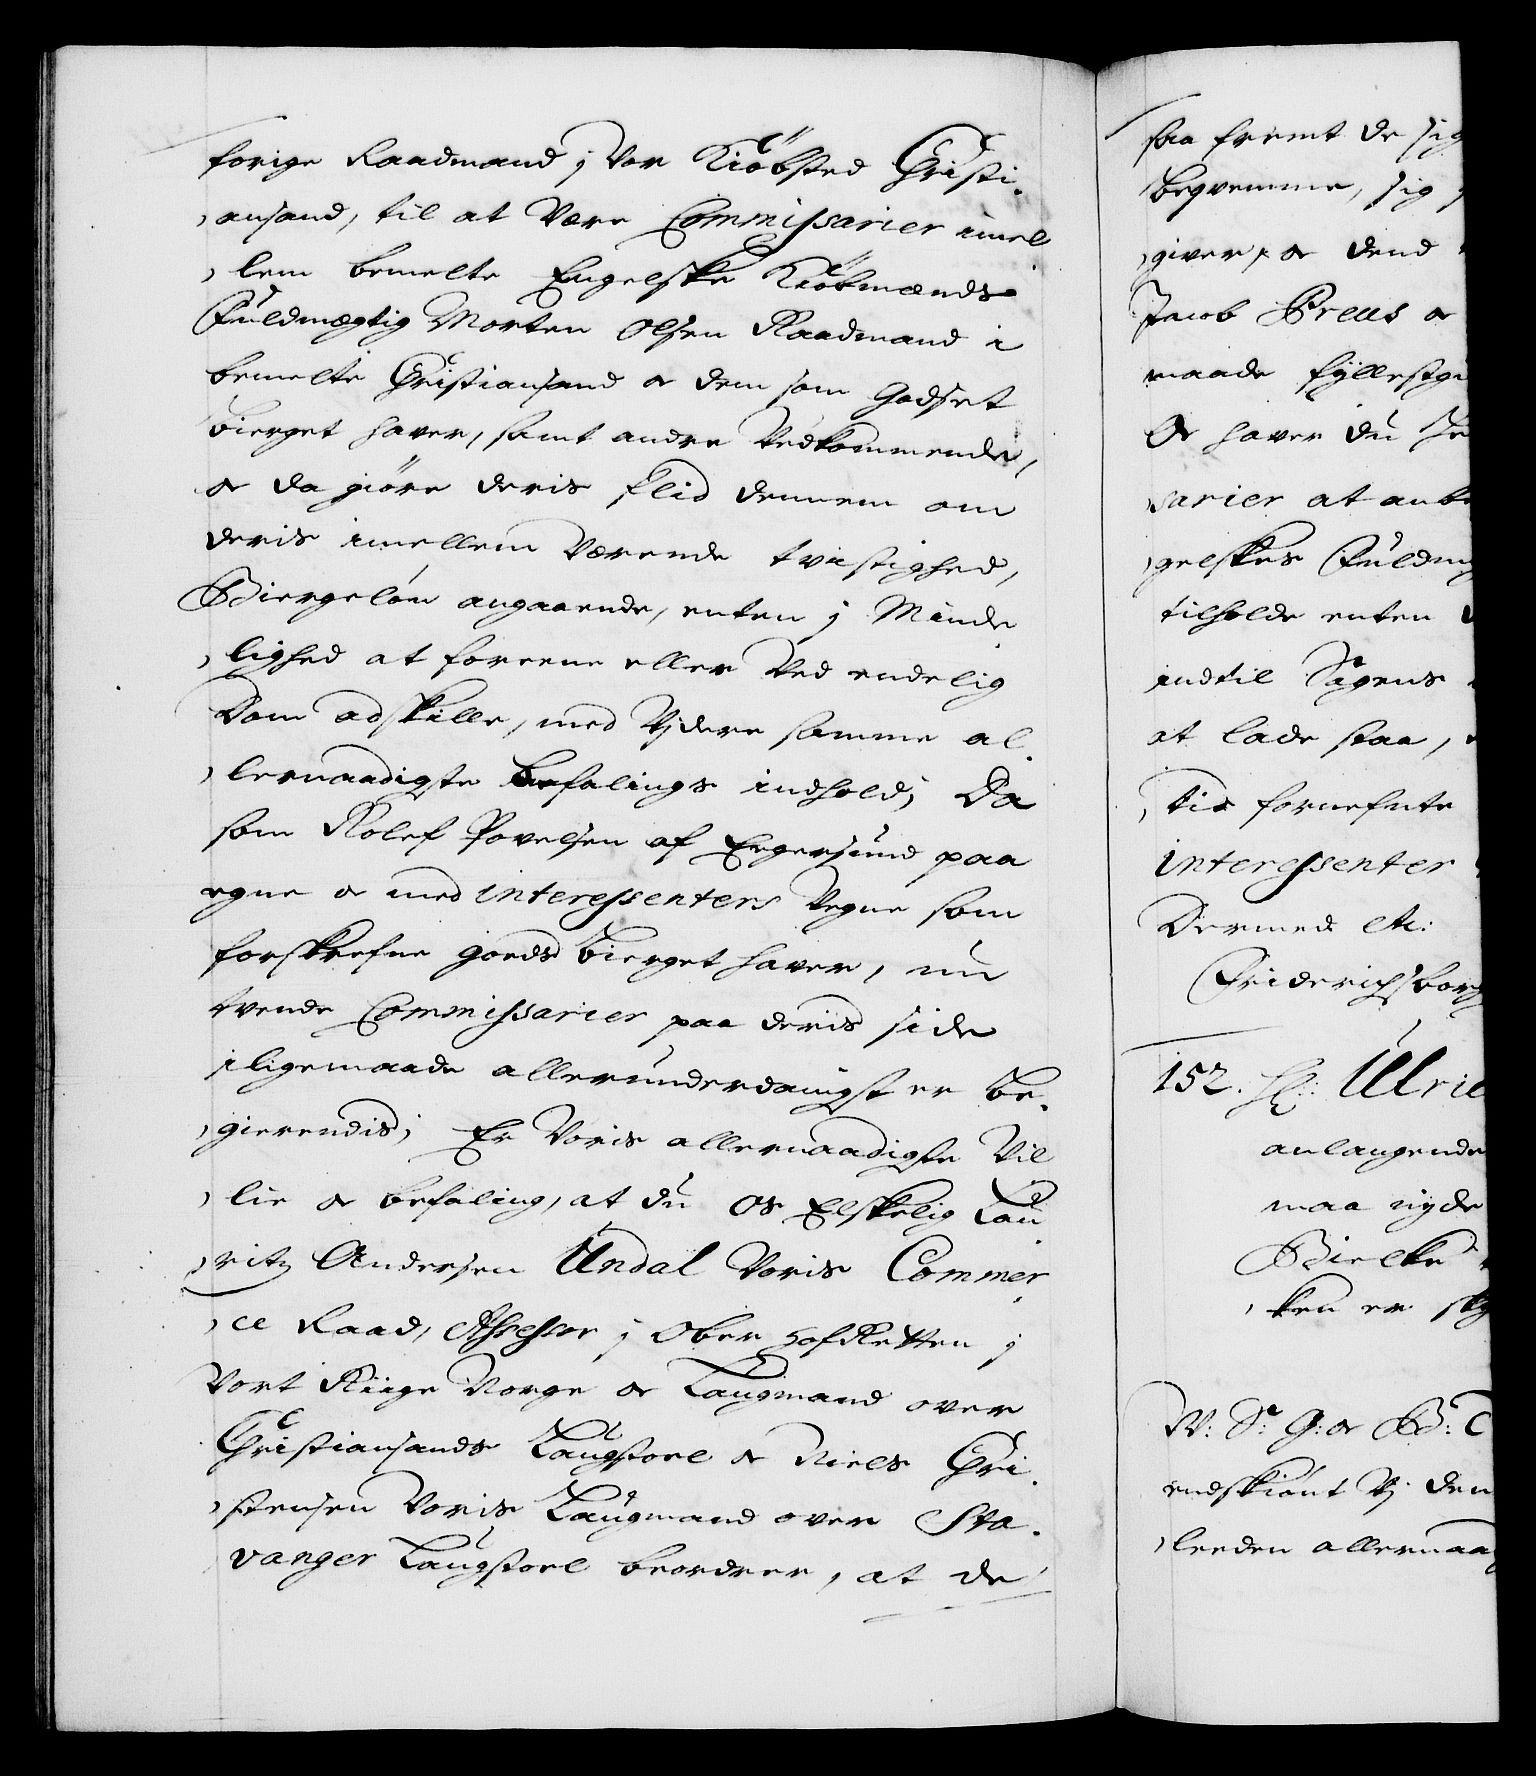 forige Raadmand j Vor Kiöbsted Christi-
ansand, til at Være Commissarier imel
lem bemelte Engelske Kiöbmænds
Fuldmægtig Morten Olsen Raadmand i
bemelte Christiansand og dem som Godset
bierget haver, samt andre Vedkommende,
og da giöre deris flid dennem om
deris imellem Værende tvistighed,
Biergelön angaaende, enten j Minde
lighed at foreene eller Ved endelig
Dom adskille, med Videre samme al
lernaadigste befalings indhold; Da
som Rolef Povelsen af Egersund paa
egne og med interessenters Vegne som
forskrefne goeds bierget haver, nu
tvende Commissarier paa deris side
iligemaade allerunderdanigst er be-
gierendis; Er Voris allernaadigste Vil
lie og befaling, at du os Elskelig Lau
ritz Andersen Undal Voris Commer
ce Raad, Assessor j Ober HofRetten j
Vort Riige Norge og Laugmand over
Christiansands Laugstoel og Niels Chri
stensen Voris Laugmand over Sta-
vanger Laugstoel beordrer, at de
saa fremt de sig
beqvemme, sig
giver, og dend
Jacob Preus og
maade fyllestgi
Og haver du
sarier at anbe
gelskes Fuldm
tilholde enten
indtil Sagens
at lade staa,
tid fornefnte
interessenter
Dermed etc:
Friderichsborg
152. Hr: Ulric
anlangende
maa nyde
Bielke
ken er
W: S: G: og B: T
endskiönt Vj den
leeden allernaad